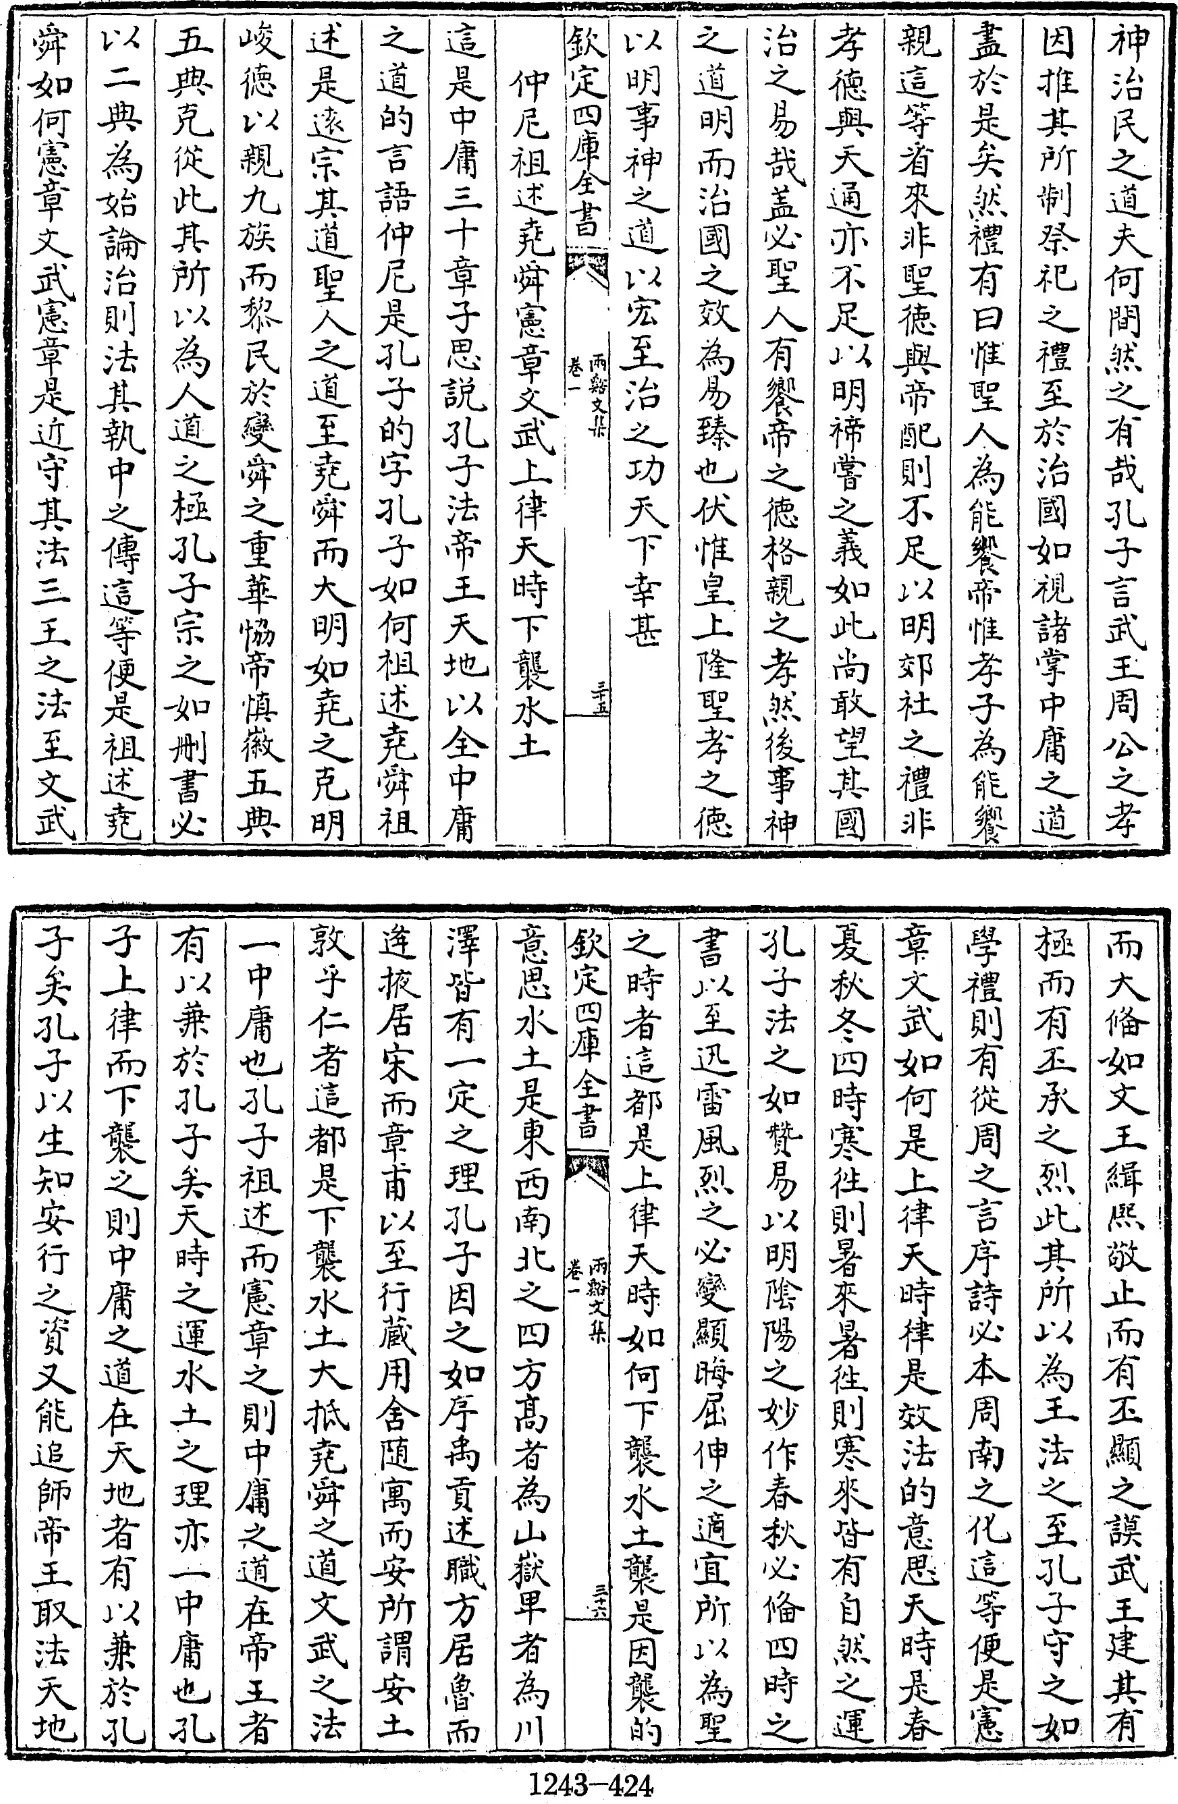 神治民之道夫何間然之有哉孔子言武王周公之孝
因推其所制祭祀之禮至於治國如視諸掌中庸之道
盡於是矣然禮有曰惟聖人為能饗帝惟孝子為能饗
親這等看來非聖德與帝配則不足以明郊社之禮非
孝德與天通亦不足以明禘嘗之義如此尚敢望其國
治之易哉蓋必聖人有饗帝之德格親之孝然後事神
之道明而治國之效為易臻也伏惟皇上隆聖孝之德
以明事神之道以宏至治之功天下幸甚
欽定四庫全書
兩谿文集
卷一
三十五
仲尼祖述堯舜憲章文武上律天時下襲水土
這是中庸三十章子思說孔子法帝王天地以全中庸
之道的言語仲尼是孔子的字孔子如何祖述堯舜祖
述是遠宗其道聖人之道至堯舜而大明如堯之克明
峻德以親九族而黎民於變舜之重華恊帝慎徽五典
五典克從此其所以為人道之極孔子宗之如刪書必
以二典為始論治則法其執中之傳這等便是祖述堯
舜如何憲章文武憲章是近守其法三王之法至文武
而大俻如文王緝熙敬止而有丕顯之謨武王建其有
極而有丕承之烈此其所以為王法之至孔子守之如
學禮則有從周之言序詩必本周南之化這等便是憲
章文武如何是上律天時律是效法的意思天時是春
夏秋冬四時寒徃則暑來暑徃則寒來皆有自然之運
孔子法之如贊易以明陰陽之妙作春秋必俻四時之
書以至迅雷風烈之必變顯晦屈伸之適宜所以為聖
之時者這都是上律天時如何下襲水土襲是因襲的
欽定四庫全書
兩谿文集
卷一
三十六
意思水土是東西南北之四方髙者為山嶽卑者為川
澤皆有一定之理孔子因之如序禹貢述職方居魯而
逢掖居宋而章甫以至行藏用舍隨寓而安所謂安土
敦乎仁者這都是下襲水土大抵堯舜之道文武之法
一中庸也孔子祖述而憲章之則中庸之道在帝王者
有以兼於孔子矣天時之運水土之理亦一中庸也孔
子上律而下襲之則中庸之道在天地者有以兼於孔
子矣孔子以生知安行之資又能追師帝王取法天地
1243-424